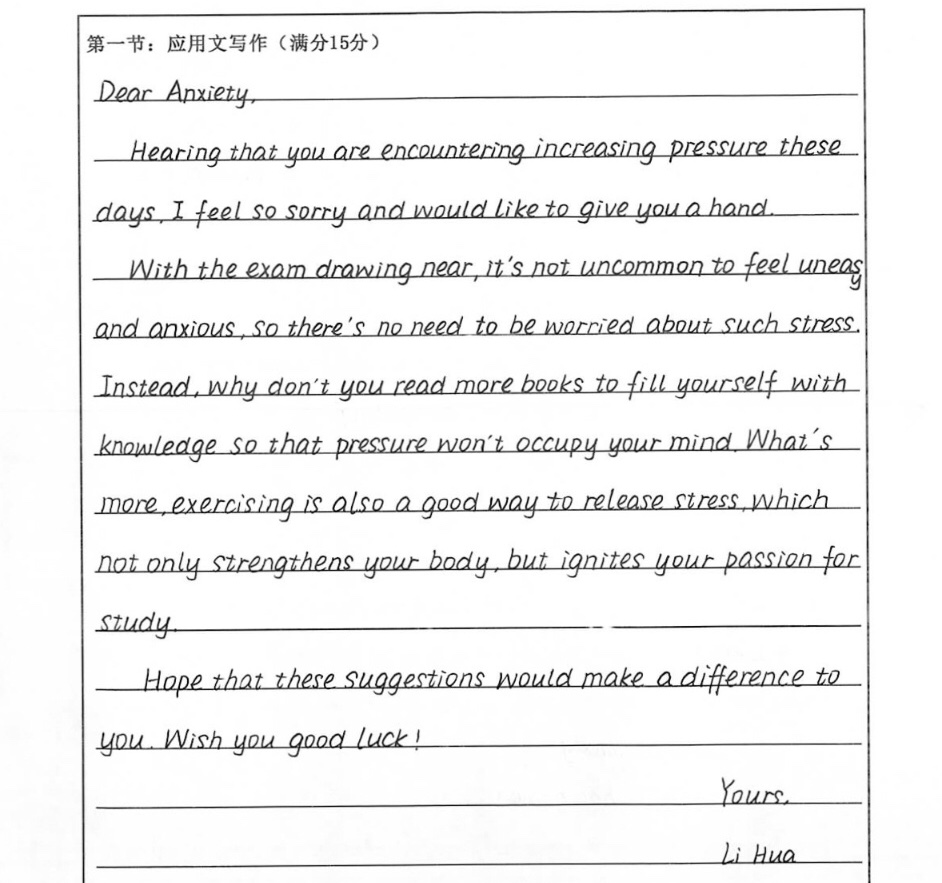 第一节：应用文写作（满分15分）
Dear Anxiety,
Hearing that you are encountering increasing pressure these
days, I feel so sorry and would like to give you a hand.
With the exam drawing near, it's not uncommon to feel uneasy
and anxious, so there's no need to be worried about such stress.
Instead, why don't you read more books to fill yourself with
knowledge so that pressure won't occupy your mind. What's
more, exercising is also a good way to release stress, which
not only strengthens your body, but ignites your passion for
study.
Hope that these suggestions would make a difference to
you. Wish you good luck!
Yours,
Li Hua